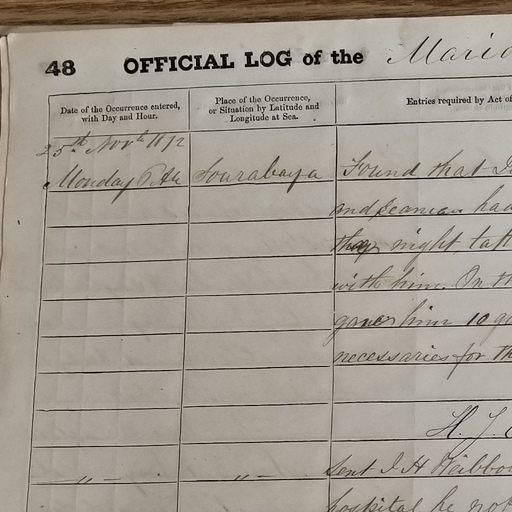 48 OFFICIAL LOG of the Mario
Date of the Occurrence entered,
with Day and Hour.
Place of the Occurrence,
or Situation by Latitude and
Longitude at Sea.
Entries required by Act of
25th Novr 1872
Monday Sourabaya Found that
and Seaman had
they might
with him. On th
gave him 10
necessaries for th
H. J.
" - " -
Sent J. H.
hospital he not